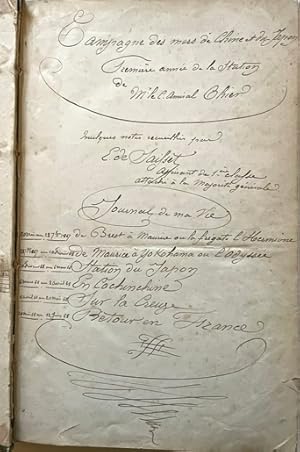 Campagne des mers de Chine et du Japon
Première année de la Station
de
Mr le C. Amiral Ohier
Quelques notes recueillies par
E. de Jaysset
Aspirant de 1re classe
attaché à la Majorité générale
Journal de ma Vie
de Brest à Maurice sur la frégate l'Hermione
de Maurice à Yokohama sur l'Odyssée
Station du Japon
En Cochinchine
Sur la Creuse
Retour en France